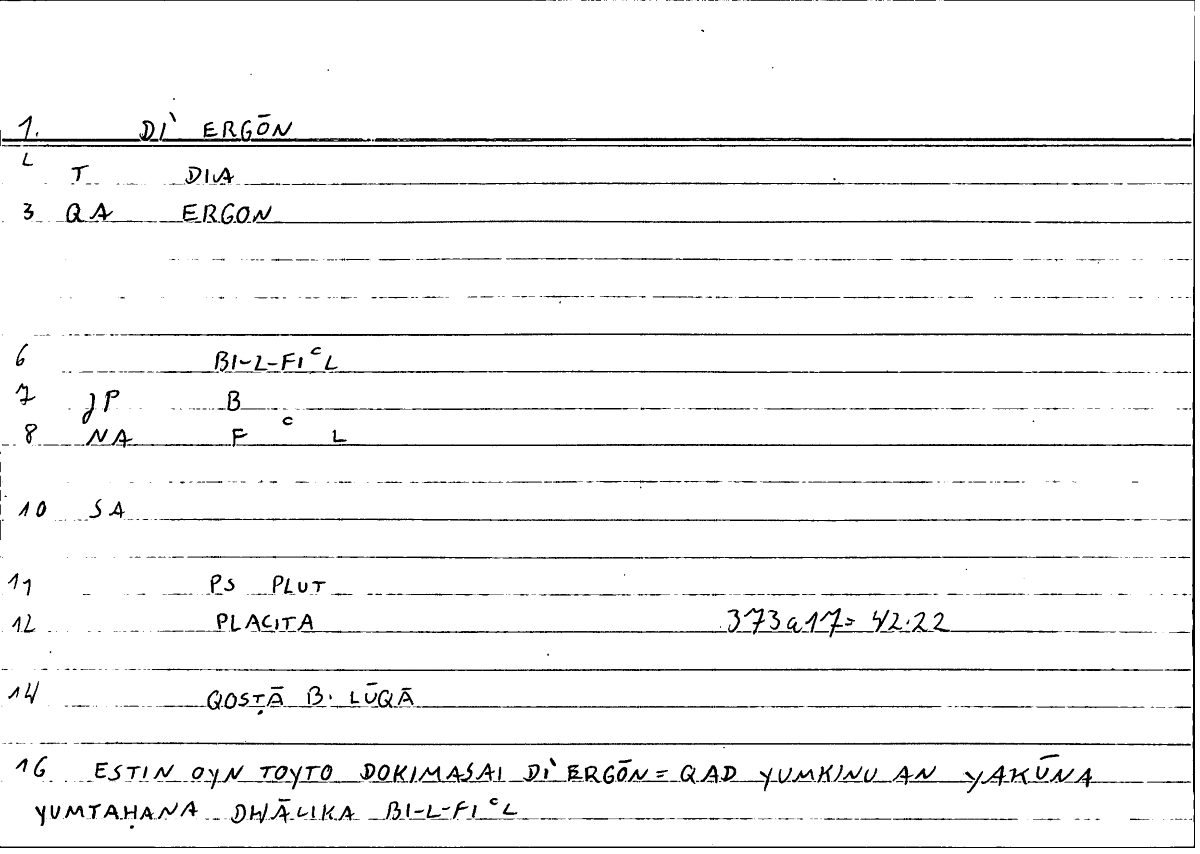 1. DI` ERGŌN
2 T DIA
3 QA ERGON
6 BI-L-FIᶜL
7 JP B
8 NA F ᶜ L
10 SA
11 PS PLUT
12 PLACITA 373a17= 42.22
14 QOSṬĀ B. LŪQĀ
16 ESTIN OYN TOYTO DOKIMASAI DI` ERGŌN = QAD YUMKINU AN YAKŪNA
YUMTAḤANA DHĀLIKA BI-L-FIᶜL